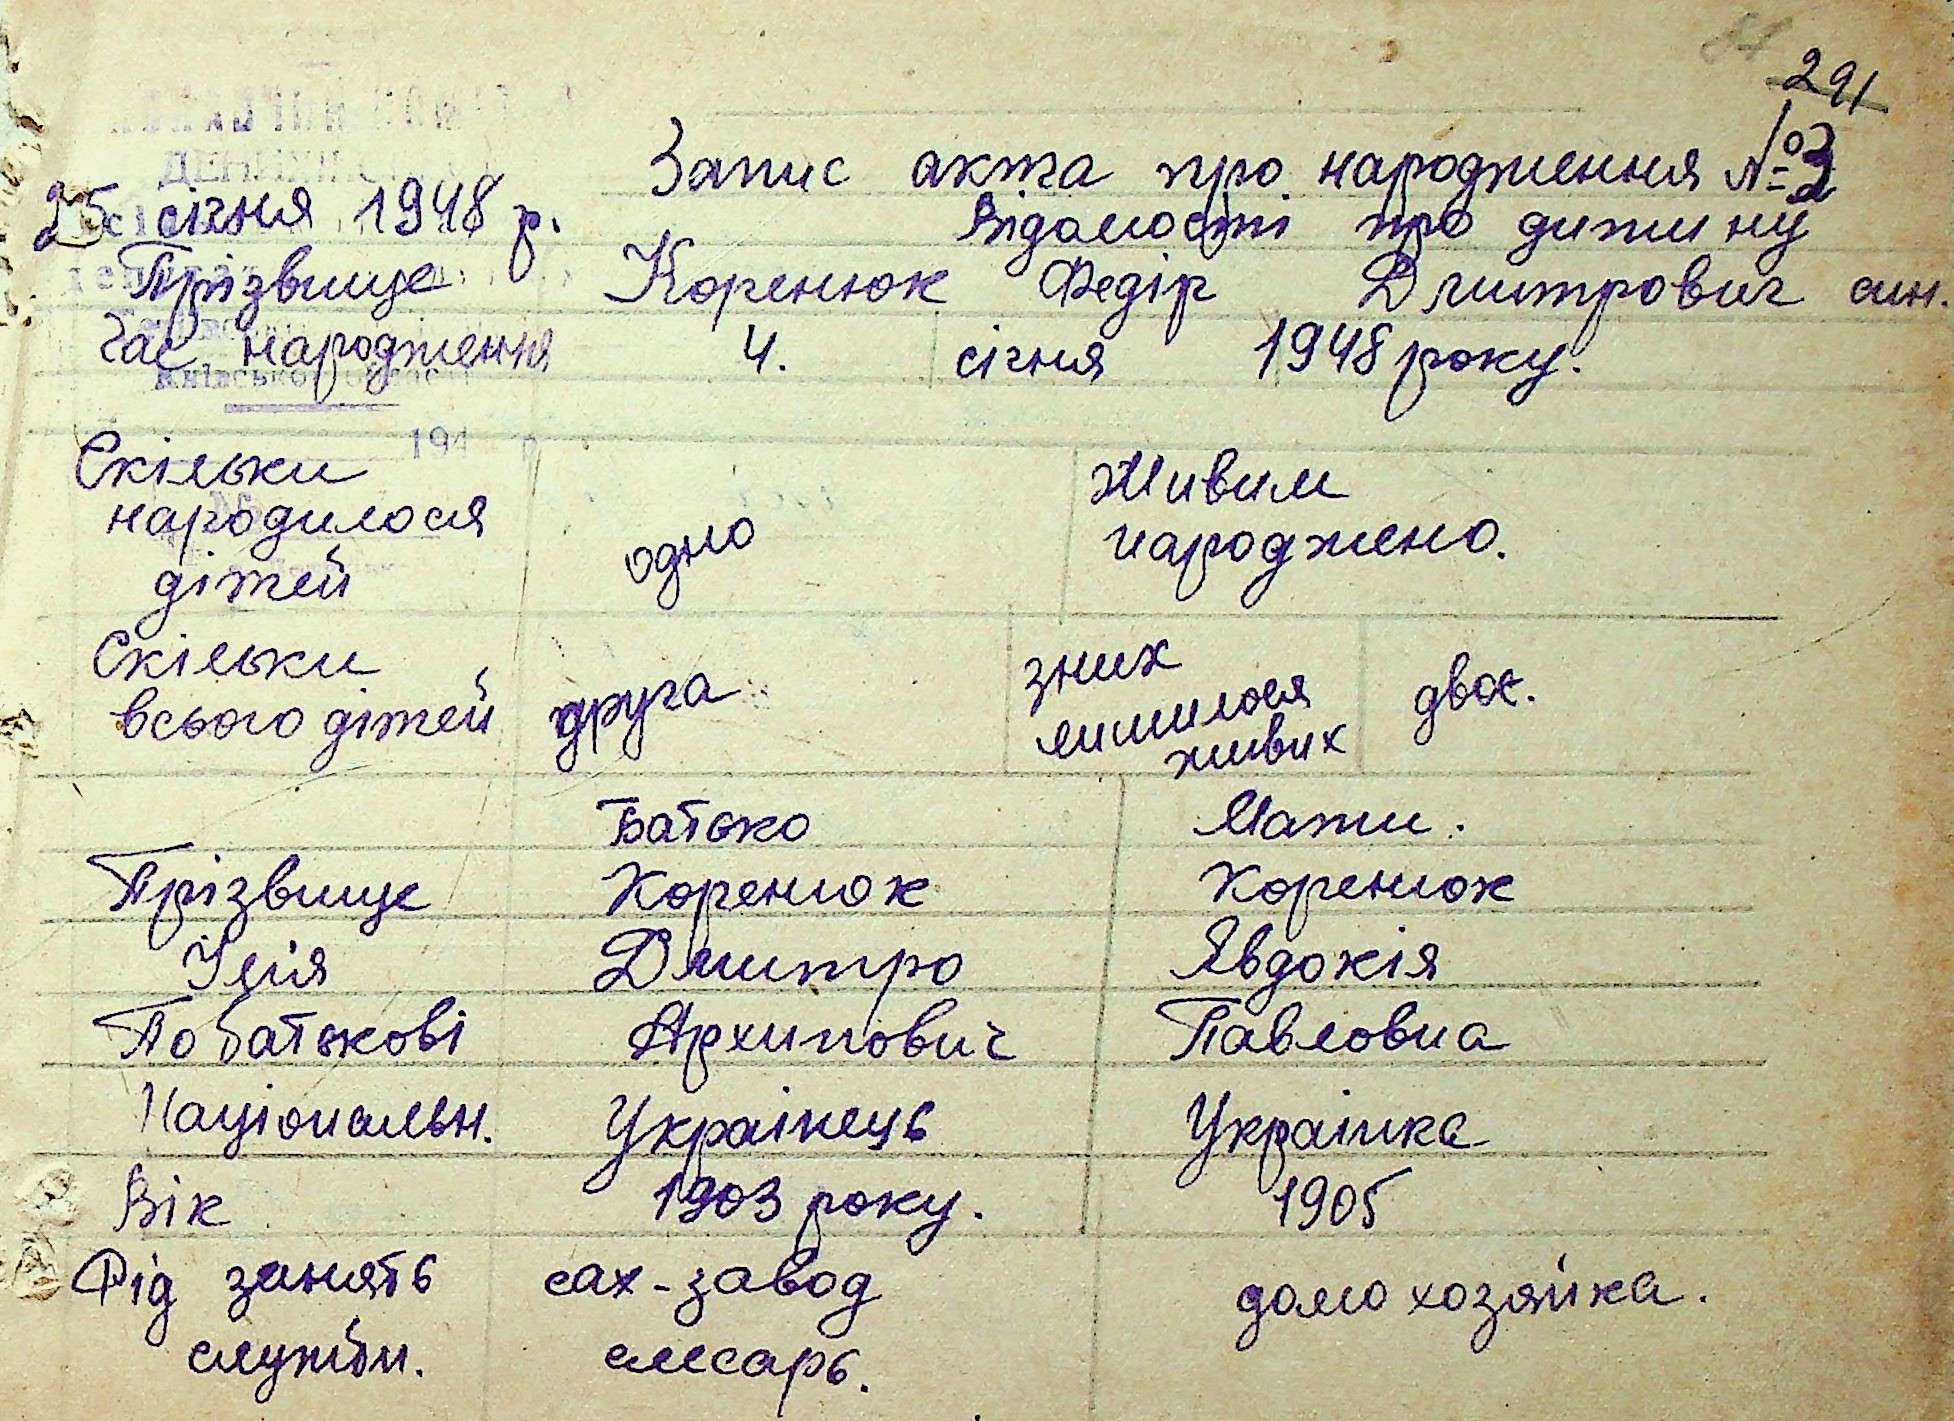 291
Запис акта про народження №3
25 січня 1948 р. Відомості про дитину
Прізвище Коренюк Федір Дмитрович син.
Час народження 4. січня 1948 року.
Київської області
194
Скільки народилося дітей одно Живим народжено.
Скільки всього дітей друга з них лишилося живих двоє.
Батько Мати.
Прізвище Коренюк Коренюк
Ім'я Дмитро Явдокія
По батькові Архипович Павловна
Національн. Українець Українка
Вік 1903 року. 1905
Рід занять сах-завод домохозяйка.
служби. слесарь.